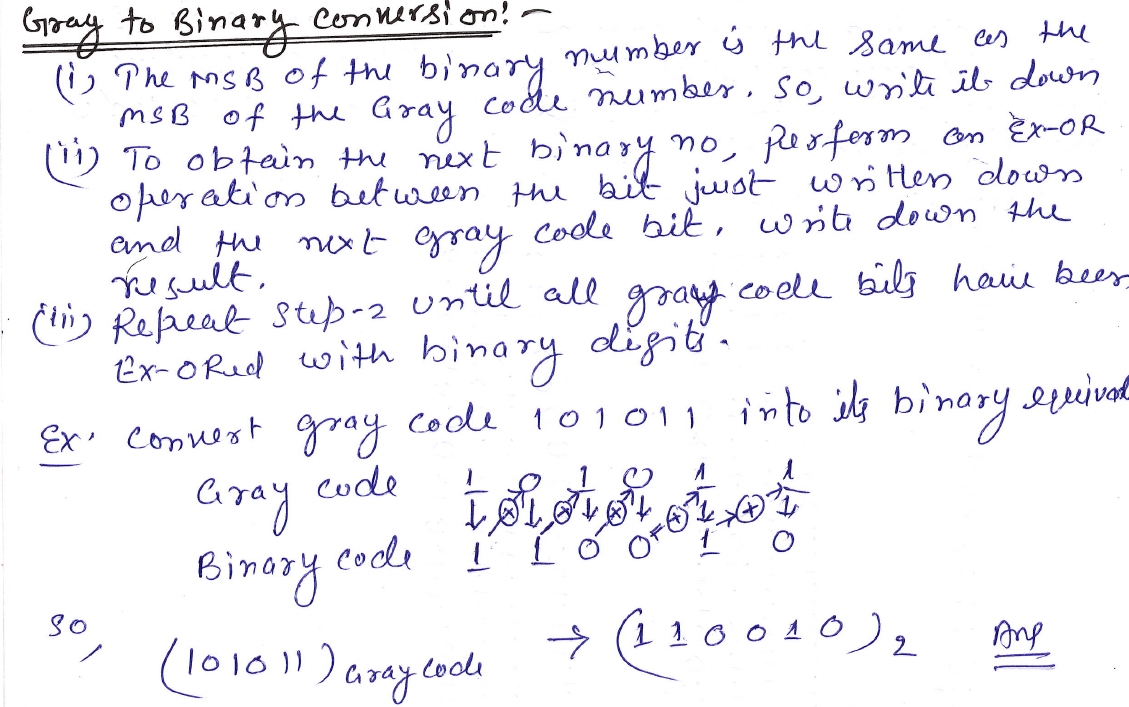 Gray to Binary Conversion:-
(i) The MSB of the binary number is the same as the
MSB of the Gray code number. So, write it down
(ii) To obtain the next binary no, perform an Ex-OR
operation between the bit just written down
and the next gray code bit. write down the
result.
(iii) Repeat step-2 until all gray code bits have been
Ex-ORed with binary digits.
Ex. Convert gray code 101011 into its binary equival
Gray code 1 0 1 0 1 1
Binary code 1 1 0 0 1 0
So, (101011) Gray code → (110010)2 Ans